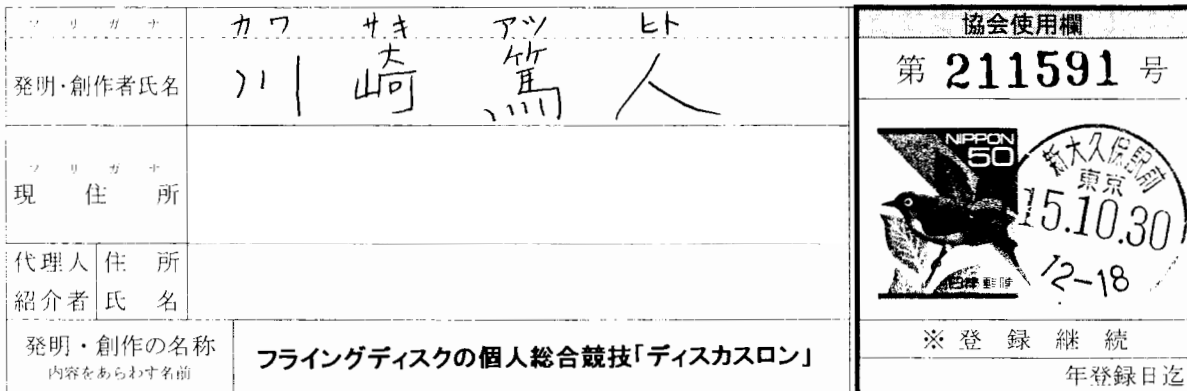 フリガナ
カワ サキ アツ ヒト
発明・創作者氏名
川崎篤人
フリガナ
現住所
代理人 住所
紹介者 氏名
発明・創作の名称
内容をあらわす名前
フライングディスクの個人総合競技「ディスカスロン」
協会使用欄
第 211591 号
NIPPON
50
日本郵便
新大久保駅前
東京
15.10.30
12-18
※登録継続
年登録日迄